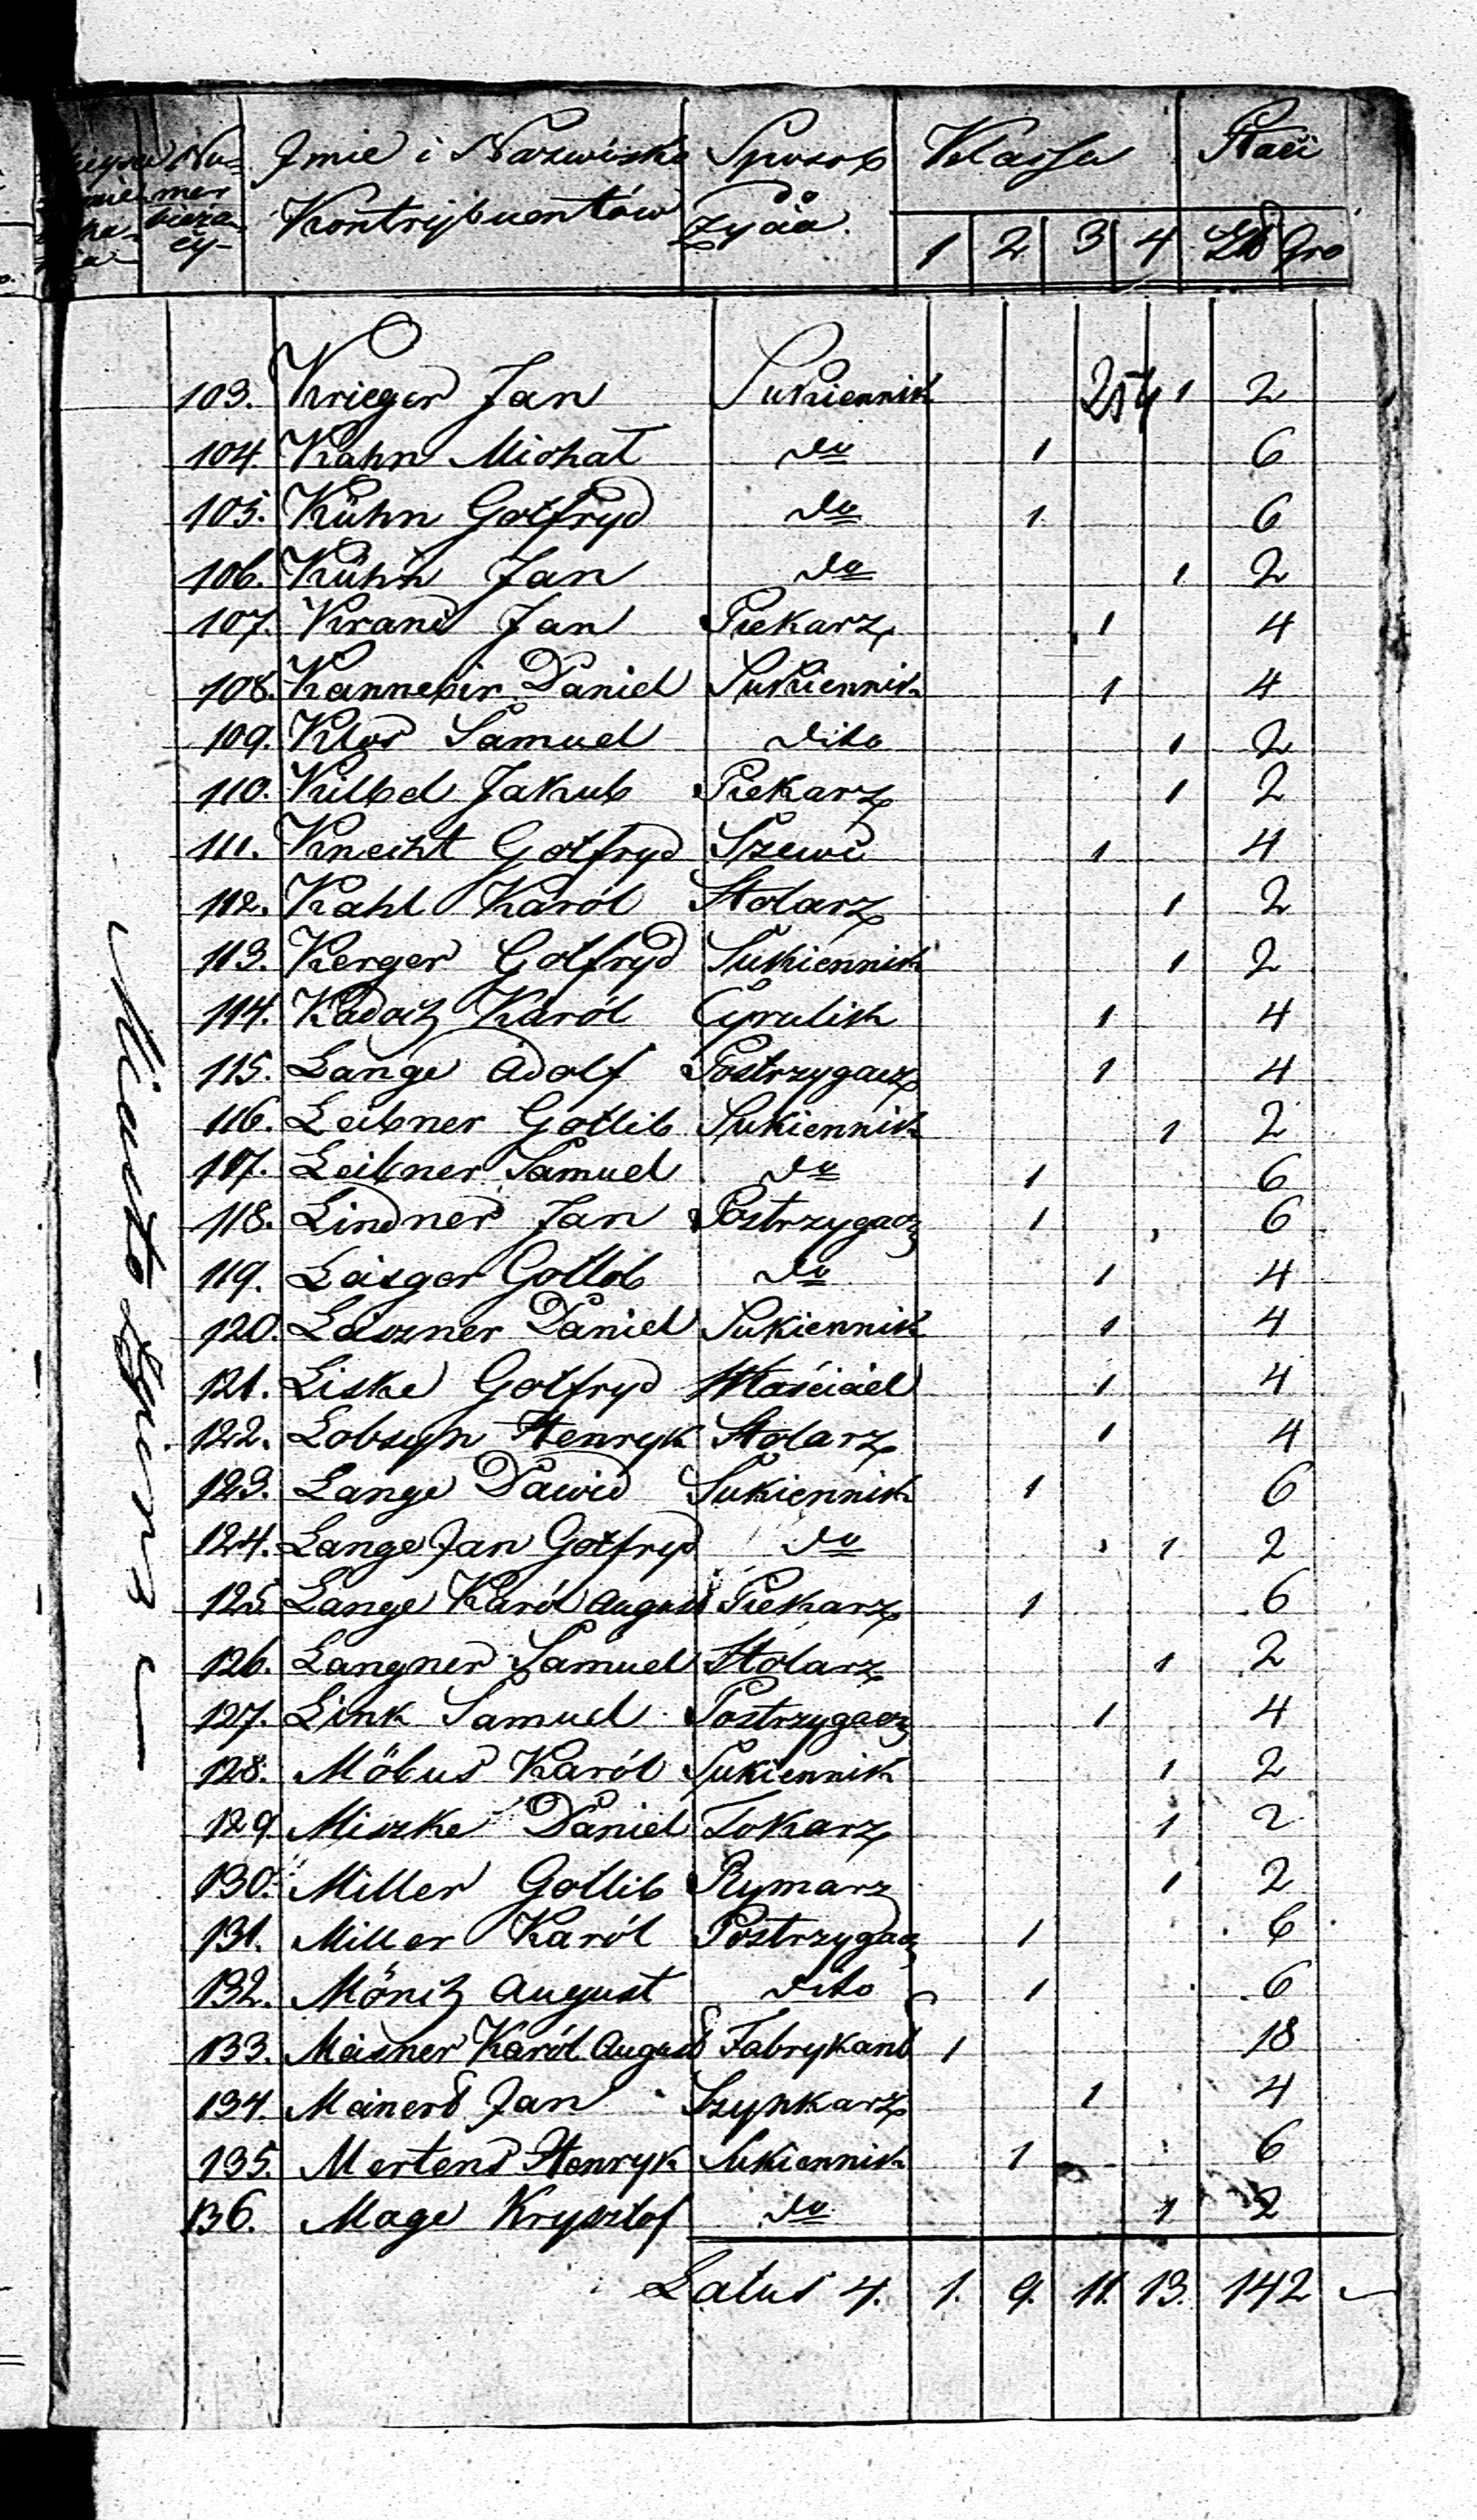 Nu= Imie i Nazwisko Sposob Klassa Płaci
mer Kontrybuentów życia. 1 2 3 4 Zł Gro
bieżą=
cy-
103. Krieger Jan Sukiennik 254 1 2
104. Kahn Michał do 1 6
105. Kühn Gotfryd do 1 6
106. Kühn Jan do 1 2
107. Kranc Jan Piekarz 1 4
108. Kannebir Daniel Sukiennik 1 4
109. Klos Samuel dito 1 2
110. Kilbel Jakub Piekarz 1 2
111. Knecht Gotfryd Szewc 1 4
112. Kahl Karól Stolarz 1 2
113. Kerger Gotfryd Sukiennik 1 2
114. Kadach Karól Cyrulik 1 4
115. Lange Adolf Postrzygacz 1 4
116. Leibner Gotlib Sukiennik 1 2
117. Leibner Samuel do 1 6
118. Lindner Jan Postrzygacz 1 6
119. Laisger Gotlib do 1 4
120. Laiszner Daniel Sukiennik 1 4
121. Liske Gotfryd Właściciel 1 4
122. Lobseyn Henryk Stolarz 1 4
123. Lange Dawid Sukiennik 1 6
124. Lange Jan Gotfryd do 1 2
125. Lange Karól August Piekarz 1 6
126. Langner Samuel Stolarz 1 2
127. Link Samuel Postrzygacz 1 4
128. Möbus Karól Sukiennik 1 2
129 Miszke Daniel Tokarz 1 2
130. Miller Gotlib Rymarz 1 2
131. Miller Karól Postrzygacz 1 6
132. Mönich August dito 1 6
133. Meisner Karól August Fabrykant 1 18
134. Meinert Jan Szynkarz 1 4
135. Mertens Henryk Sukiennik 1 6
136. Mage Krysztof do 1 2
Latus 4. 1. 9. 11. 13. 142 -
Miasto Zgierz